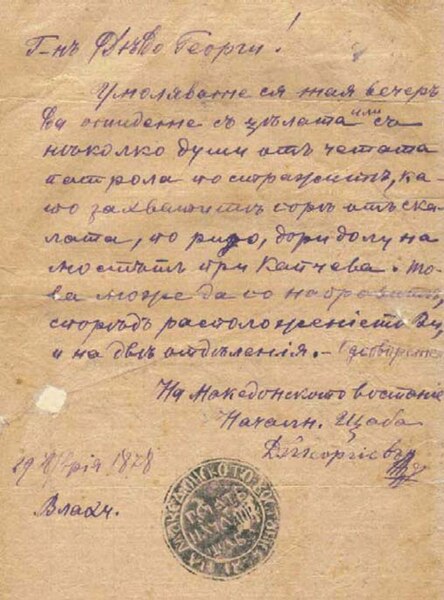 Г-нъ Дѣдо Георги!
Умолявате ся тая вечеръ
да отидете съ цѣлата или съ
нѣколко души отъ четата
патрола по стражитѣ, ка-
то захватитъ горѣ отъ ска-
лата, по ридо, дори долу на
мостътъ при Капчева. То-
ва може да го направитъ
споредъ расположенieто Ви,
и на двѣ отдѣленiя.–
На Македонското востание
Началн. Щаба
Д. Георгиевъ
29 1878
Влахи.